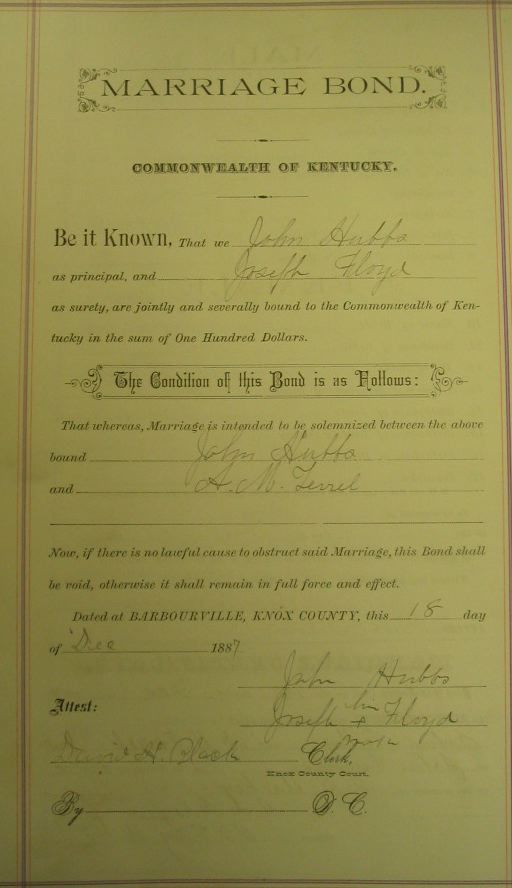 MARRIAGE BOND.
COMMONWEALTH OF KENTUCKY.
Be it Known, That we John Hubbs
as principal, and Joseph Floyd
as surety, are jointly and severally bound to the Commonwealth of Ken-
tucky in the sum of One Hundred Dollars.
The Condition of this Bond is as Follows:
That whereas, Marriage is intended to be solemnized between the above
bound John Hubbs
and A. M. Terrel
Now, if there is no lawful cause to obstruct said Marriage, this Bond shall
be void, otherwise it shall remain in full force and effect.
Dated at BARBOURVILLE, KNOX COUNTY, this 18 day
of Dec 1887
John Hubbs
his
Attest: Joseph + Floyd
mark
David H. Black Clerk,
Knox County Court.
By D. C.